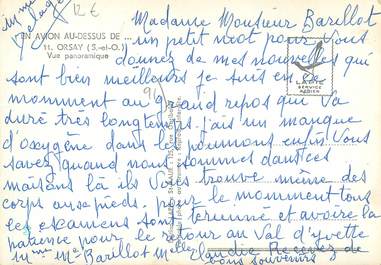 Mme
Pelage
12 €
EN AVION AU-DESSUS DE ...
11. ORSAY (S.-et-O.)
Vue panoramique
LAPIE
SERVICE
AERIEN
91
Madame Monsieur Barillot
un petit mot pour vous
donner de mes nouvelles qui
sont bien meilleurs je suis en ce
moment au grand repos qui va
duré très longtemps j'ais un manque
d'oxygène dans le poumons enfin vous
savez quand nous sommes dans ces
maisons là ils vous trouve même des
corps aux pieds. pour le moment tous
les examens sont terminné et avoire la
patience pour le retour au Val d'yvette
Mme Mr Barillot Melle Claudie Recevez de
bons souvenirs